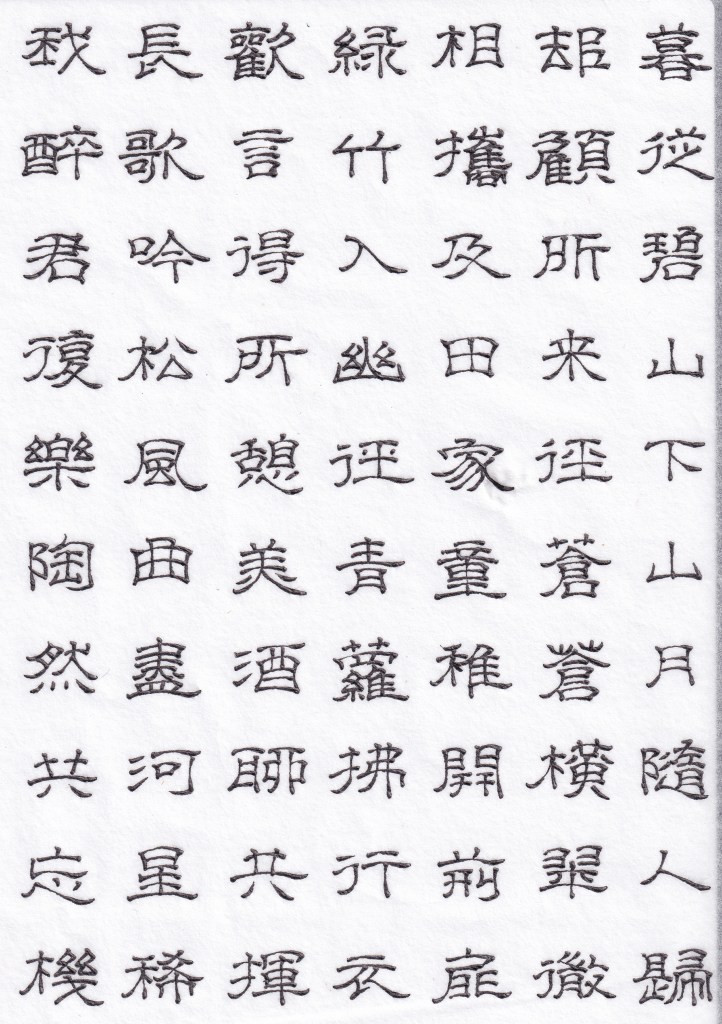 暮從碧山下山月隨人歸
却顧所来徑蒼蒼橫翠微
相攜及田家童稚開荊扉
緑竹入幽徑青蘿拂行衣
歡言得所憩美酒聊共揮
長歌吟松風曲盡河星稀
我醉君復樂陶然共忘機